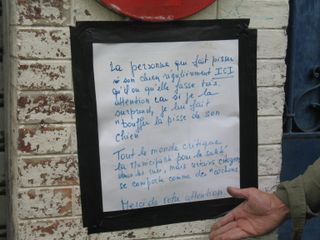 La personne qui fait pisser
son chien régulièrement ICI
qu'il ou qu'elle fasse très
attention car si je la
surprend, je lui fait
"bouffer la pisse de son
chien"
Tout le monde critique
la municipalité pour la saleté
dans les rues, mais citoyens
se comporte comme des "cochons"
Merci de votre attention